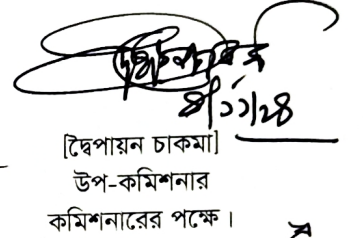 ৪/১১/২৪
[দ্বৈপায়ন চাকমা]
উপ-কমিশনার
কমিশনারের পক্ষে।